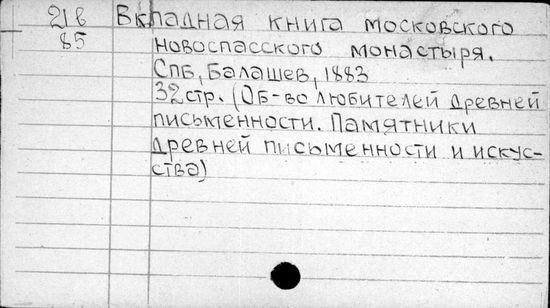 21б Вкладная книга московского
85 новоспасского монастыря.
СПБ, Балашев, 1883
32стр. (Об-во любителей древней
письменности. Памятники
древней письменности и искус-
ства)